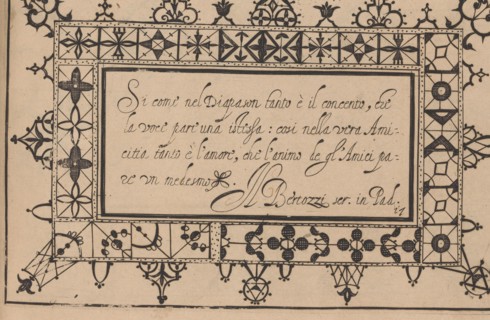 Si come nel Diapason tanto è il concento, che
la voce pare una istessa: cosi nella vera Ami-
citia tanto è l'amore, che l'animo de gl'Amici pa-
re vn medesmo.
M Bertozzi scr. in Pad.